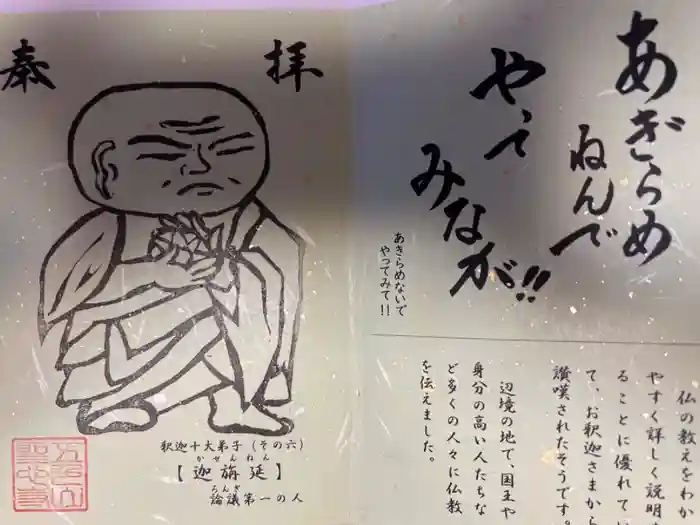 奉拝
釈迦十大弟子（その六）
かせんねん
【迦旃延】
ろんぎ
論議第一の人
あぎらめ
ねんで
やって
みなが!!
あきらめないで
やってみて!!
仏の教えをわか
やすく詳しく説明
ることに優れて
て、お釈迦さまから
讃嘆されたそうです
辺境の地で、国王や
身分の高い人たちな
ど多くの人々に仏教
を伝えました。